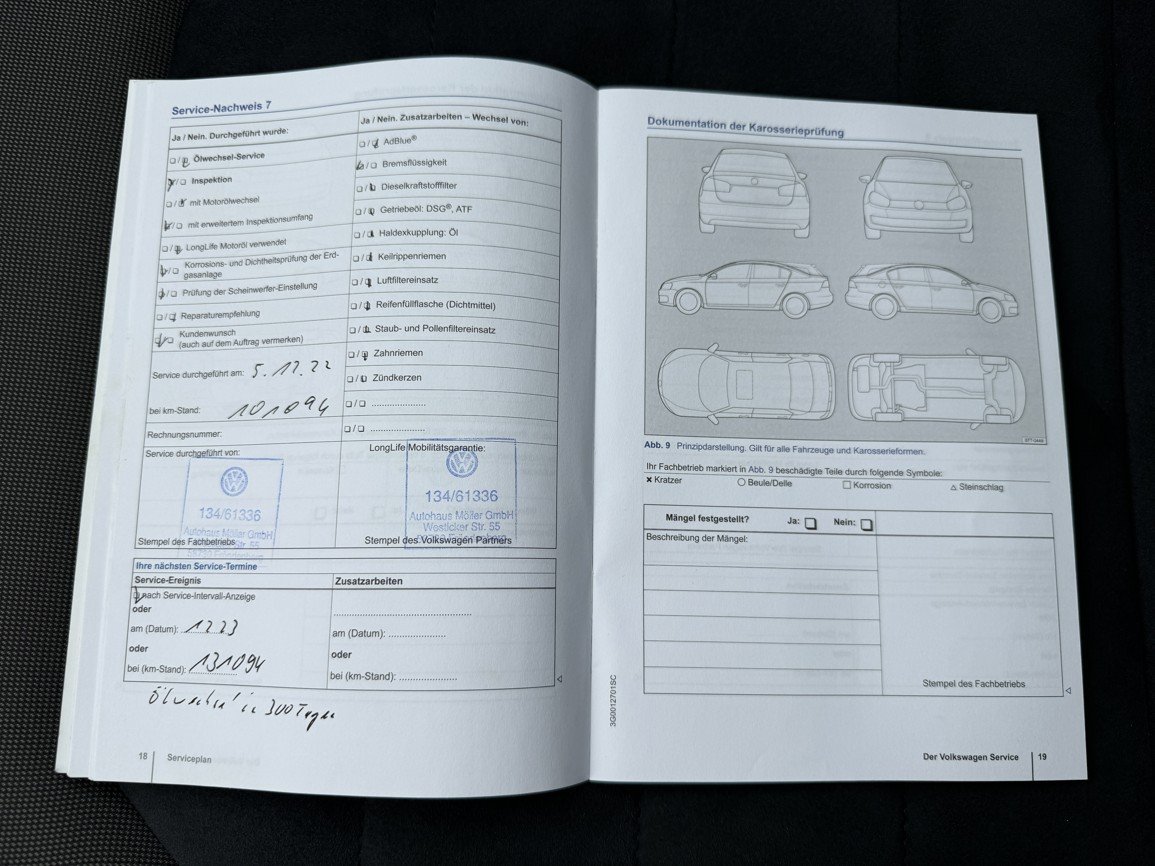 Service-Nachweis 7
Ja / Nein. Durchgeführt wurde:
Ölwechsel-Service
Inspektion
mit Motorölwechsel
mit erweitertem Inspektionsumfang
LongLife Motoröl verwendet
Korrosions- und Dichtheitsprüfung der Erd-
gasanlage
Prüfung der Scheinwerfer-Einstellung
Reparaturempfehlung
Kundenwunsch
(auch auf dem Auftrag vermerken)
Service durchgeführt am: 5.12.22
bei km-Stand: 101094
Rechnungsnummer:
Service durchgeführt von:
134/61336
Autohaus Möller GmbH
Str. 55
Stempel des Fachbetriebs
Ja / Nein. Zusatzarbeiten – Wechsel von:
AdBlue®
Bremsflüssigkeit
Dieselkraftstofffilter
Getriebeöl: DSG®, ATF
Haldexkupplung: Öl
Keilrippenriemen
Luftfiltereinsatz
Reifenfüllflasche (Dichtmittel)
Staub- und Pollenfiltereinsatz
Zahnriemen
Zündkerzen
LongLife Mobilitätsgarantie:
134/61336
Autohaus Möller GmbH
Westicker Str. 55
Stempel des Volkswagen Partners
Ihre nächsten Service-Termine
Service-Ereignis
nach Service-Intervall-Anzeige
oder
am (Datum): 12 23
oder
bei (km-Stand): 131094
Zusatzarbeiten
am (Datum):
oder
bei (km-Stand):
Ölwechsel in 300 Tagen
18 Serviceplan
Dokumentation der Karosserieprüfung
Abb. 9 Prinzipdarstellung. Gilt für alle Fahrzeuge und Karosserieformen.
Ihr Fachbetrieb markiert in Abb. 9 beschädigte Teile durch folgende Symbole:
Kratzer Beule/Delle Korrosion Steinschlag
Mängel festgestellt? Ja: Nein:
Beschreibung der Mängel:
Stempel des Fachbetriebs
3G0012701SC
Der Volkswagen Service 19